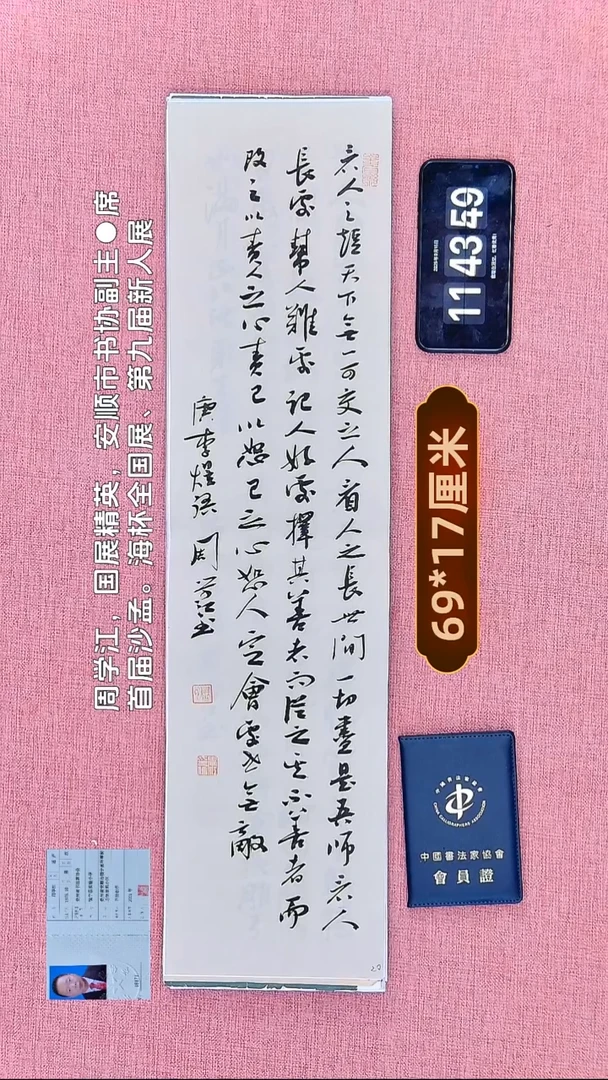 周学江，国展精英，安顺市书协副主●席
首届沙孟。海杯全国展、第九届新人展
看人之短天下無一可交之人看人之長世間一切盡是吾師看人
長處幫人難處記人好處擇其善者而從之其不善者而
改之以責人之心責己以恕己之心恕人定會處世無敵
唐李煜語 周学江書
11 43 59
69*17厘米
中國書法家協會
CHINA CALLIGRAPHERS ASSOCIATION
中國書法家協會
會員證